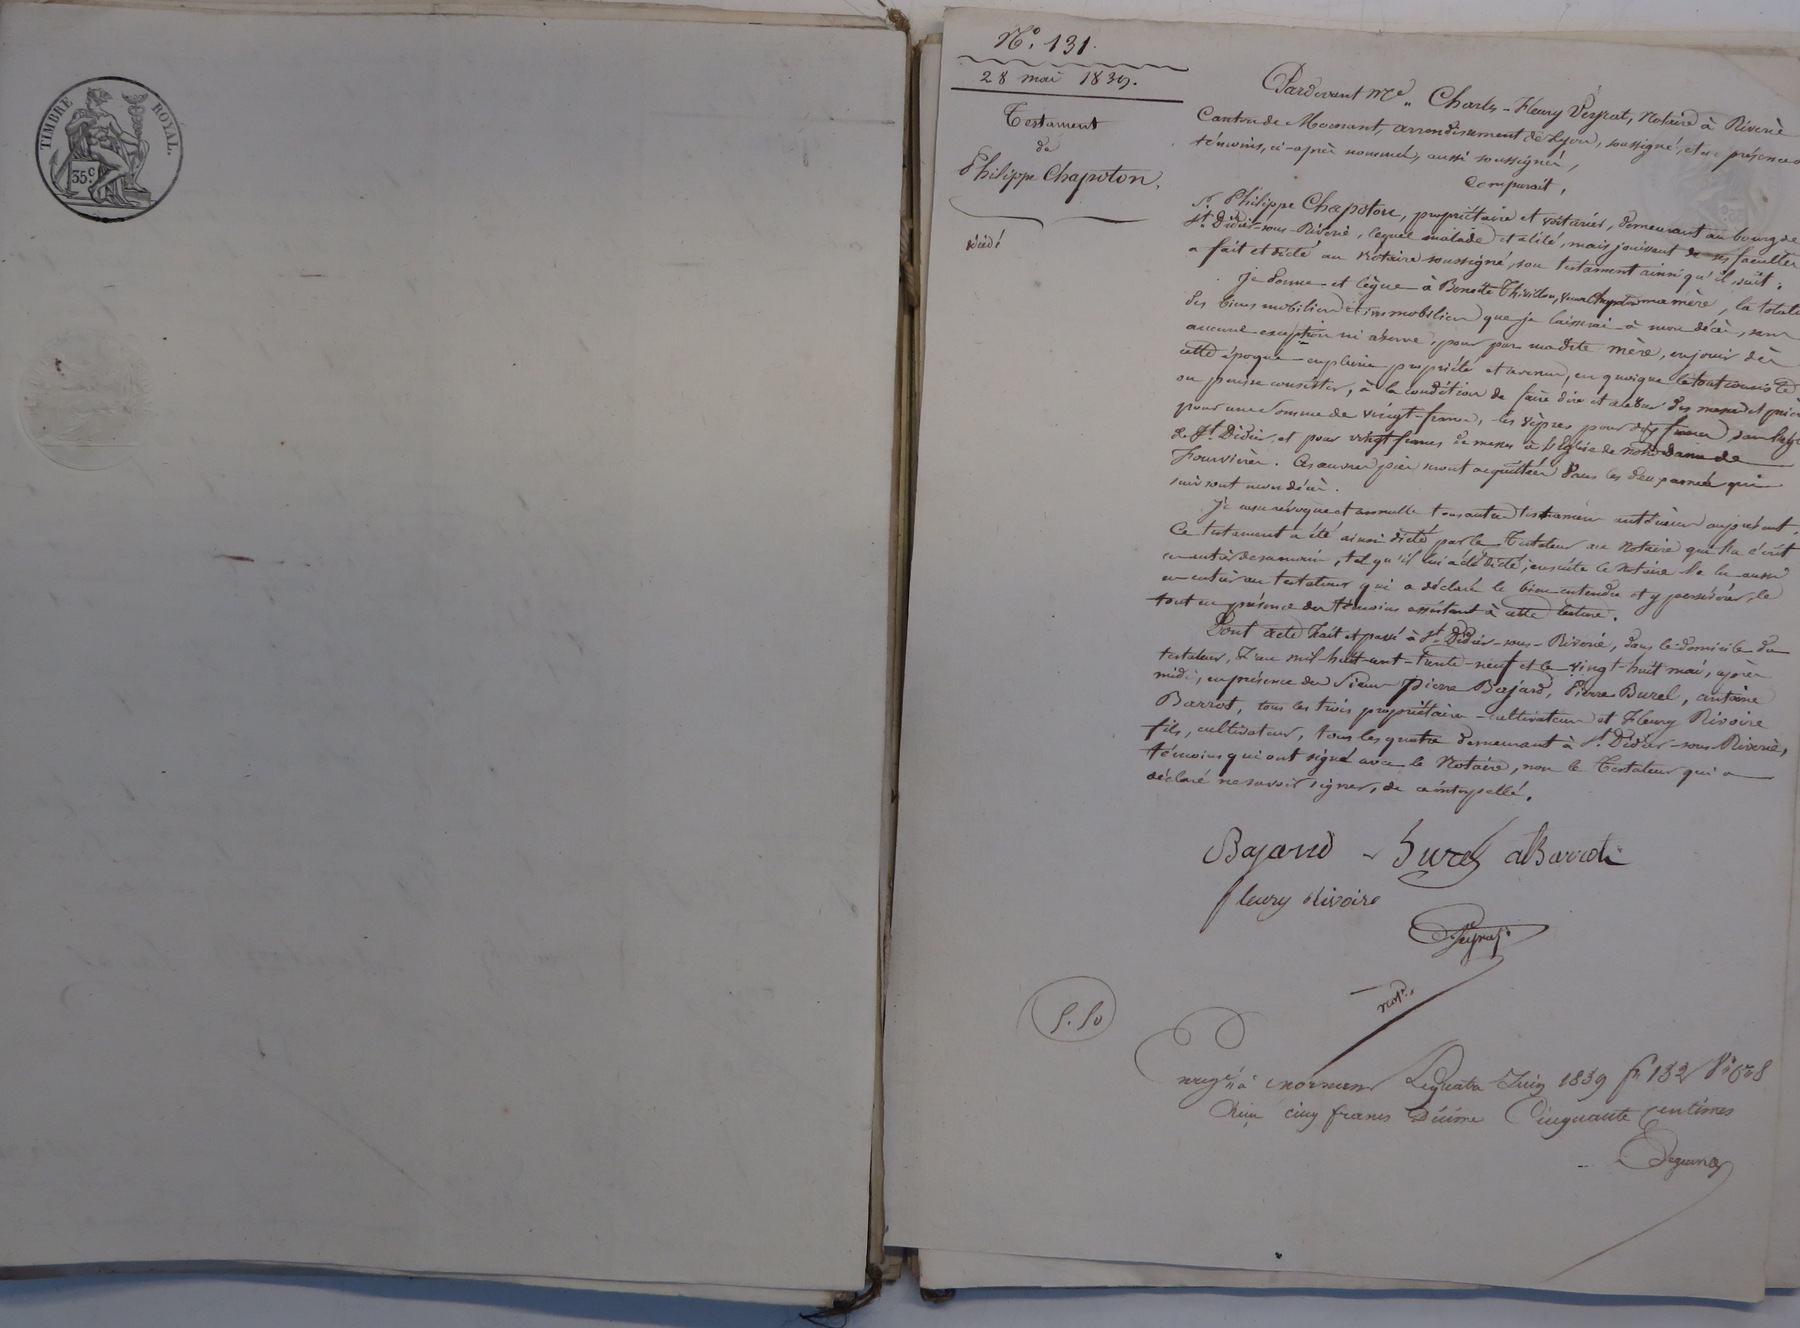 TIMBRE ROYAL.
35c
N.° 131.
28 mai 1839.
Testament
de
Philippe Chapoton.
décédé
Pardevant Me. Charles-Fleury Peyrat, Notaire à Riverie
Canton de Mornant, arrondissement de Lyon, soussigné, et en présence
témoins, ci-après nommés, aussi soussignés,
Comparait,
Sr. Philippe Chapoton, propriétaire et voiturier, demeurant au bourg de
St. Didier-sous-Riverie, lequel malade et alité, mais jouissant de ses facultés
a fait et dicté au Notaire soussigné, son testament ainsi qu'il suit.
Je donne et lègue à Benoite Thivillon, veuve Chapoton ma mère, la totali
des biens mobiliers et immobiliers que je laisserai à mon décès, sans
aucune exception ni réserve, pour par madite mère, en jouir dès
cette époque en pleine propriété et revenus, en quoique le tout consiste
ou puisse consister, à la condition de faire dire et célébrer des messes et prièr
pour une somme de vingt-francs, les vêpres pour dix francs dans l'égli
de St. Didier, et pour vingt francs de messes à l'Eglise de notre dame de
Fourvières. Ces œuvres pies seront acquittées dans les deux années qui
suivront mon décès.
Je casse révoque et annulle tous autres testamens antérieurs à aujourd'hui.
Ce testament a été ainsi dicté par le Testateur au Notaire qui l'a écrit
en entier de sa main, tel qu'il lui a été dicté; ensuite ce Notaire l'a lu aussi
en entier au testateur qui a déclaré le bien entendre et y persévérer, le
tout en présence des témoins assistant à cette lecture.
Dont acte Fait et passé à St. Didier-sous-Riverie, dans le domicile du
testateur, L'an mil-huit-cent-trente-neuf et le vingt-huit mai, après
midi, en présence des Sieurs Pierre Bajard, Pierre Burel, antoine
Barrot, tous les trois propriétaires-cultivateurs et Fleury Rivoire
fils, cultivateur, tous les quatre demeurant à St. Didier-sous-Riverie,
témoins qui ont signé avec le Notaire, non le Testateur qui a
déclaré ne savoir signer, de ce interpellé.
Bajard Burel aBarrot
fleury Rivoire
Peyrat
notre.
5.50
Enregé à mornant Le quatre Juin 1839 fo 132
Reçu cinq francs Décime Cinquante Centimes